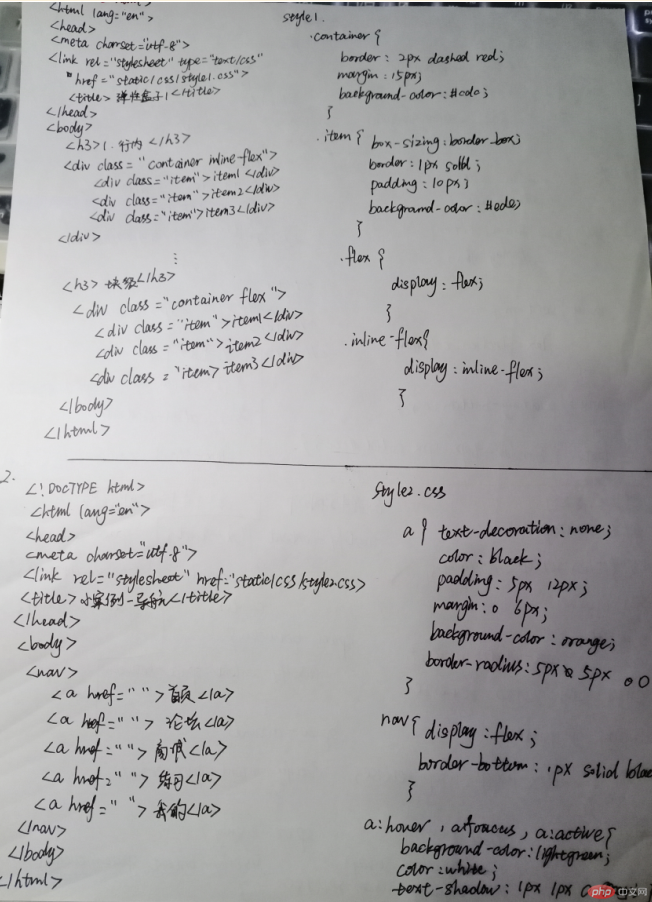 <html lang="en">
<head>
<meta charset="utf-8">
<link rel="stylesheet" type="text/css"
href="static/css/style1.css">
<title>弹性盒子1</title>
</head>
<body>
<h3>1.行内</h3>
<div class="container inline-flex">
<div class="item">item1</div>
<div class="item">item2</div>
<div class="item">item3</div>
</div>
⋮
<h3>块级</h3>
<div class="container flex">
<div class="item">item1</div>
<div class="item">item2</div>
<div class="item>item3</div>
</body>
</html>
style1.
.container {
border: 2px dashed red;
margin: 15px;
background-color: #cdc;
}
.item { box-sizing: border-box;
border: 1px solid;
padding: 10px;
background-color: #ede;
}
.flex {
display: flex;
}
.inline-flex{
display: inline-flex;
}
2.
<!DOCTYPE html>
<html lang="en">
<head>
<meta charset="utf-8">
<link rel="stylesheet" href="static/css/style2.css>
<title>小案例-导航</title>
</head>
<body>
<nav>
<a href="">首页</a>
<a href="">论坛</a>
<a href=""></a>
<a href="">练习</a>
<a href="">我的</a>
</nav>
</body>
</html>
style2.css
a{ text-decoration: none;
color: black;
padding: 5px 12px;
margin: 0 6px;
background-color: orange;
border-radius: 5px 5px 0 0
}
nav{ display: flex;
border-bottom: 1px solid blac
}
a:hover, a:foucus, a:active{
background-color: lightgreen;
color: white;
text-shadow: 1px 1px
php 中文网